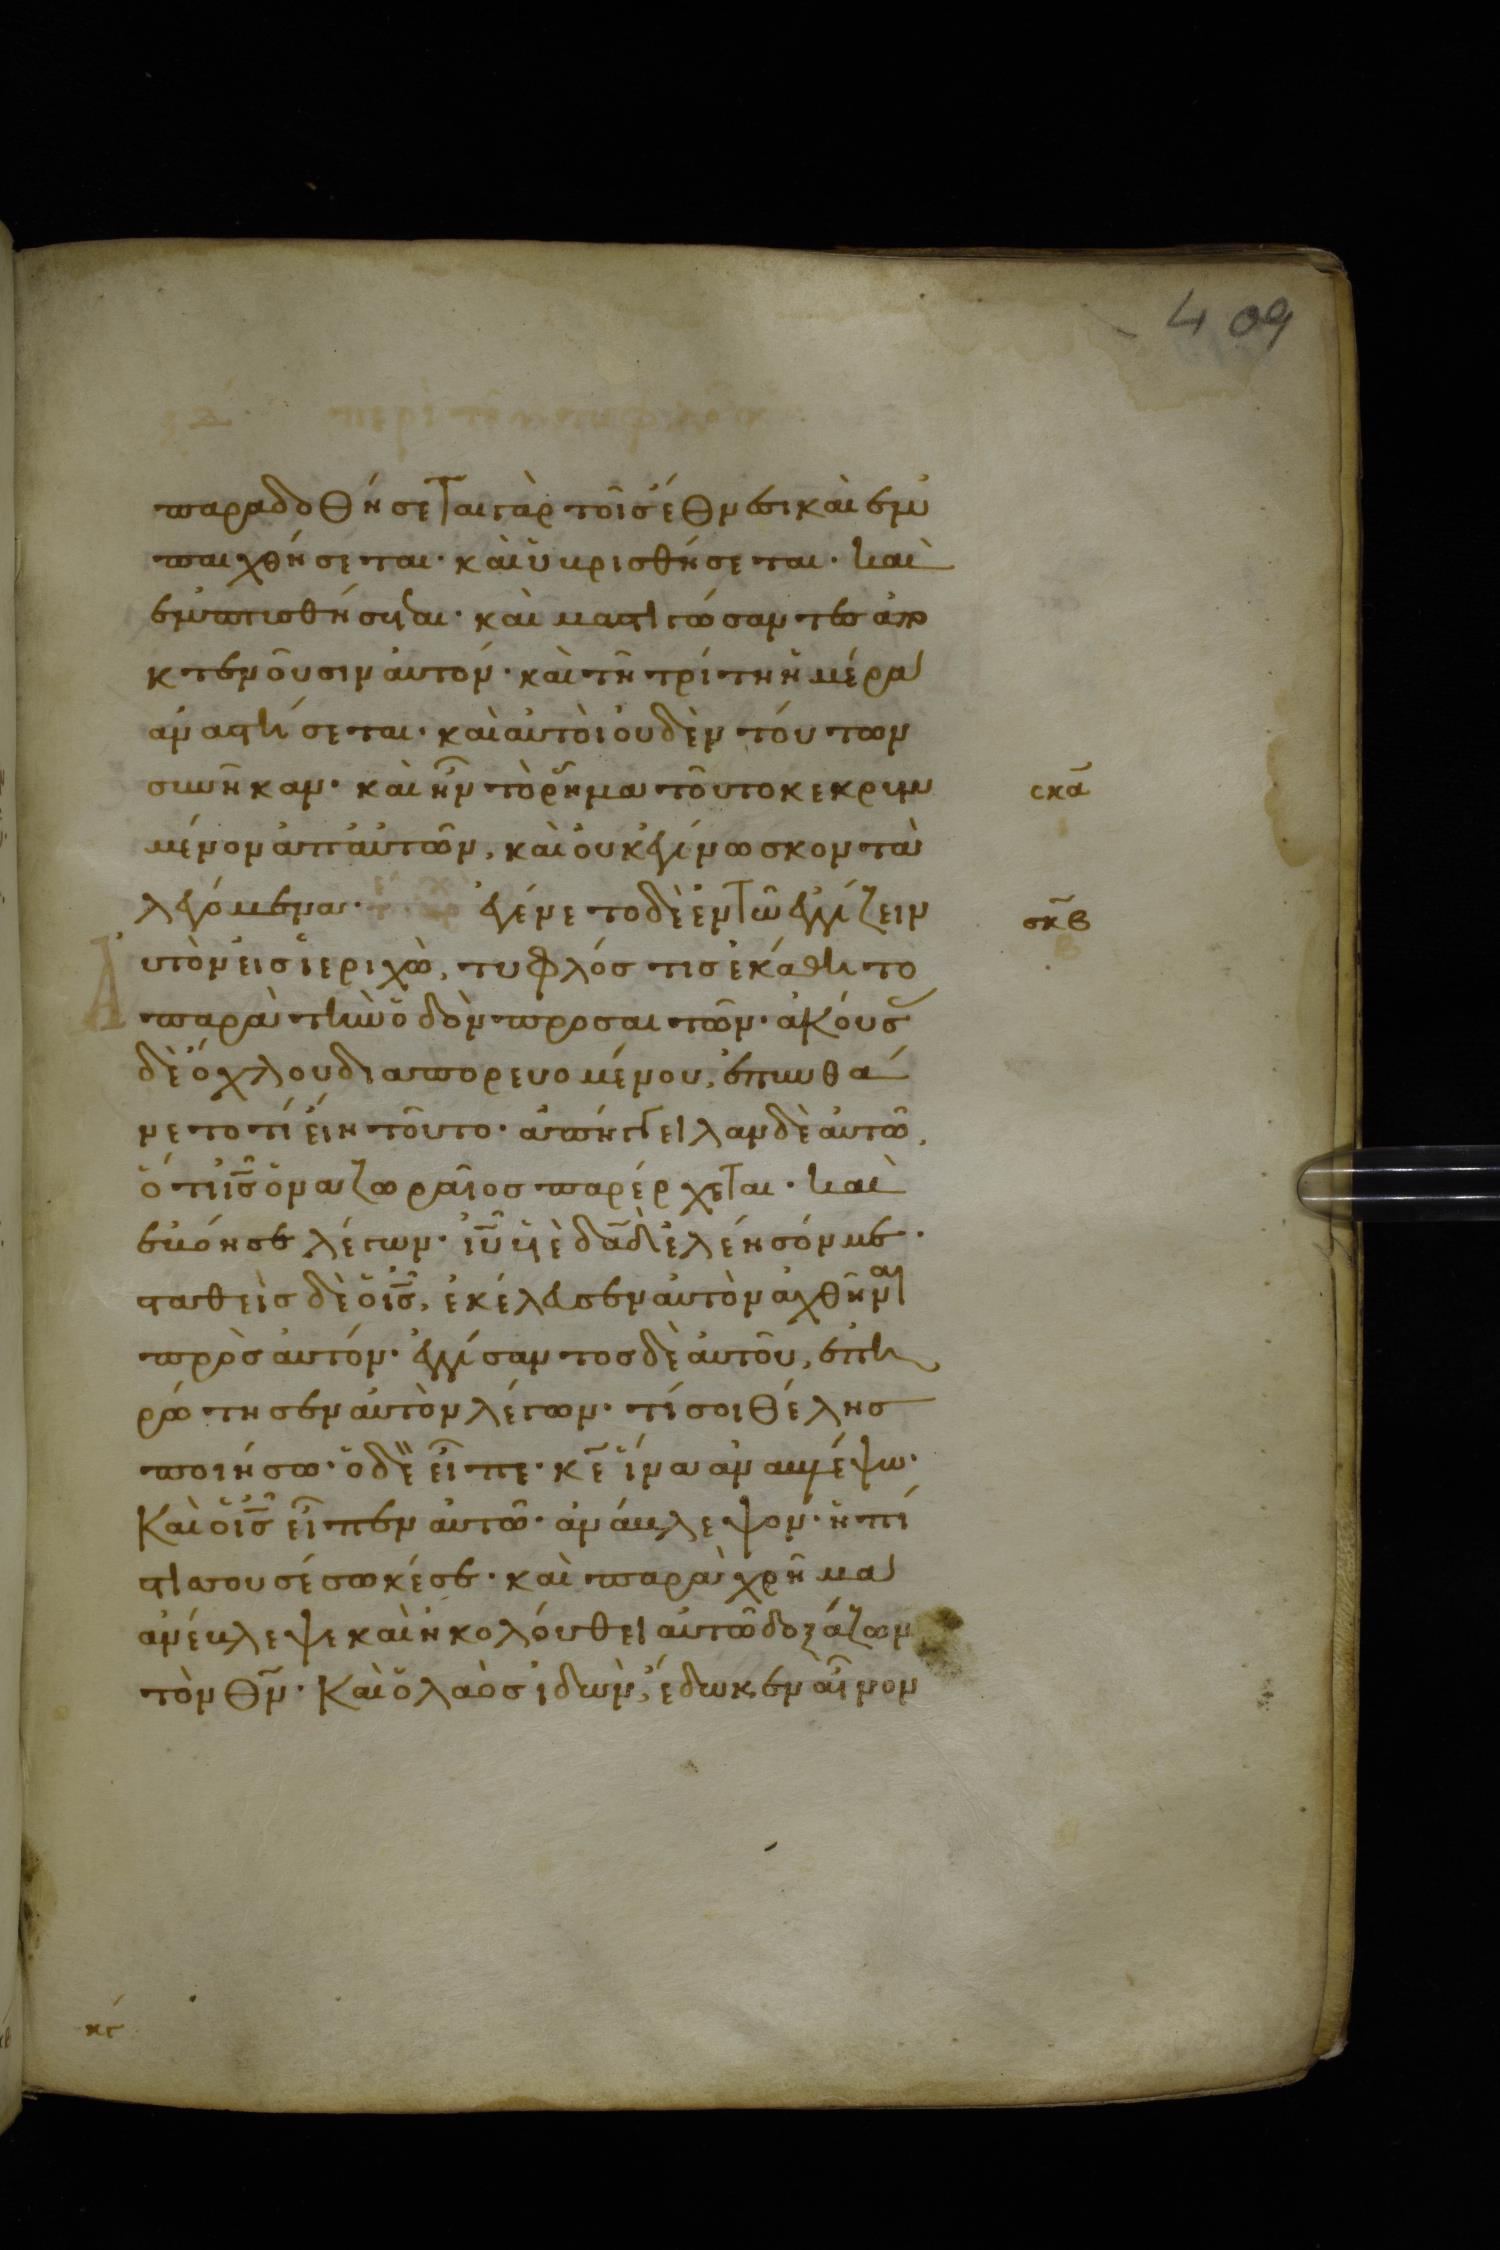 409
ξδ περὶ τοῦ τυφλοῦ
παραδοθήσεται γὰρ τοῖς ἔθνεσι καὶ ἐμ
παιχθήσεται· καὶ ὑβρισθήσεται· καὶ
ἐμπτισθήσεται· καὶ μαστιγώσαντες ἀπο
κτενοῦσιν αὐτόν· καὶ τῆ τρίτη ἡμέρα
ἀναστήσεται· καὶ αὐτοὶ οὐδὲν τούτων
συνῆκαν· καὶ ἦν τὸ ῥῆμα τοῦτο κεκρυμ
σκα
μένον ἀπ' αὐτῶν, καὶ οὐκ ἐγίνωσκον τὰ
λεγόμενα· ἐγένετο δὲ ἐν τῶ ἐγγίζειν
σκβ
Αὐτὸν εἰς ἱεριχὼ, τυφλός τις ἐκάθητο
παρὰ τὴν ὁδὸν προσαιτῶν· ἀκούσας
δὲ ὄχλου διαπορευομένου, ἐπυνθά
νετο τί εἴη τοῦτο· ἀπήγγειλαν δὲ αὐτῶ,
ὅτι ις ὁ ναζωραῖος παρέρχεται· καὶ
ἐβόησε λέγων· ιυ υἱὲ δαδ ἐλέησόν με·
σταθεὶς δὲ ὁ ις, ἐκέλευσεν αὐτὸν ἀχθῆναι
πρὸς αὐτόν· ἐγγίσαντος δὲ αὐτοῦ, ἐπη
ρώτησεν αὐτὸν λέγων· τί σοι θέλης
ποιήσω· ὁ δὲ εἶπε· κε ἵνα ἀναβλέψω·
Καὶ ὁ ις εἶπεν αὐτῶ· ἀνάβλεψον· ἡ πί
στις σου σέσωκέ σε· καὶ παραχρῆμα
ἀνέβλεψε καὶ ἠκολούθει αὐτῶ δοξάζων
τὸν θν· Καὶ ὁ λαὸς ἰδὼν, ἔδωκεν αἶνον